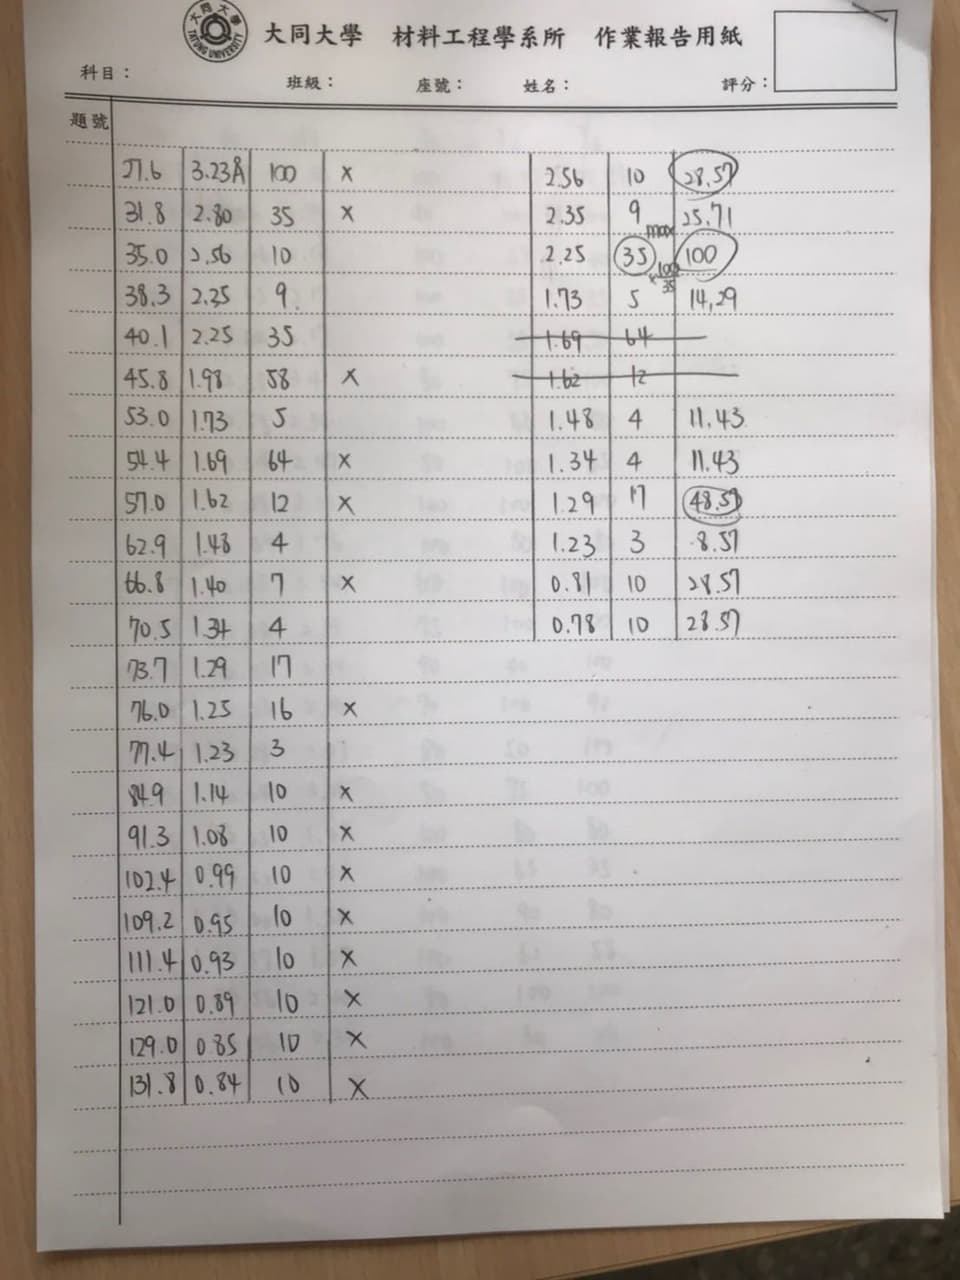 大同大學
TATUNG UNIVERSITY
大同大學 材料工程學系所 作業報告用紙
科目： 班級： 座號： 姓名： 評分：
題號
27.6 3.23Å 100 x 2.56 10 28.57
31.8 2.80 35 x 2.35 9 25.71
max
35.0 2.56 10 2.25 35 x 100/35 100
38.3 2.35 9. 1.73 5 14,29
40.1 2.25 35 1.69 64
45.8 1.98 58 x 1.62 12
53.0 1.73 5 1.48 4 11.43
54.4 1.69 64 x 1.34 4 11.43
57.0 1.62 12 x 1.29 17 48.57
62.9 1.48 4 1.23 3 8.57
66.8 1.40 7 x 0.81 10 28.57
70.5 1.34 4 0.78 10 28.57
73.7 1.29 17
76.0 1.25 16 x
77.4 1.23 3
84.9 1.14 10 x
91.3 1.08 10 x
102.4 0.99 10 x
109.2 0.95 10 x
111.4 0.93 10 x
121.0 0.89 10 x
129.0 0.85 10 x
131.8 0.84 10 x